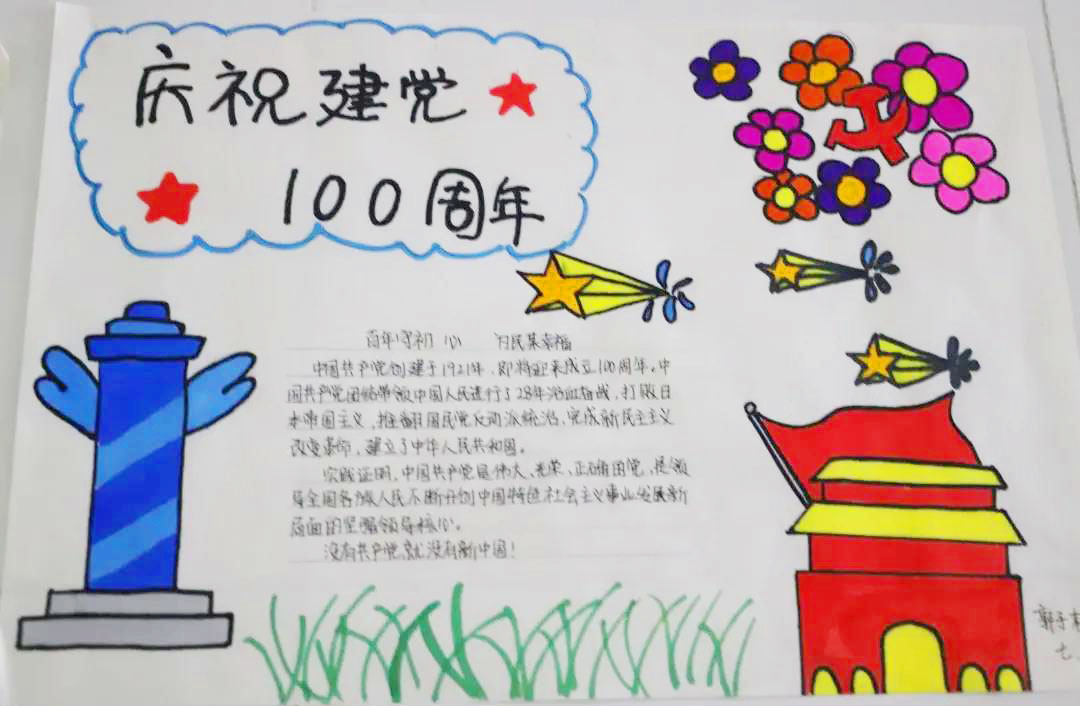 庆祝建党
100周年
百年守初心 为民某幸福
中国共产党创建于1921年,即将迎来成立100周年。中
国共产党团结带领中国人民进行了28年浴血奋战,打败日
本帝国主义,推翻国民党反动派统治,完成新民主主义
改变革命,建立了中华人民共和国。
实践证明,中国共产党是伟大、光荣、正确的党,是领
导全国各族人民不断开创中国特色社会主义事业发展新
局面的坚强领导核心。
没有共产党,就没有新中国!
郭子
七